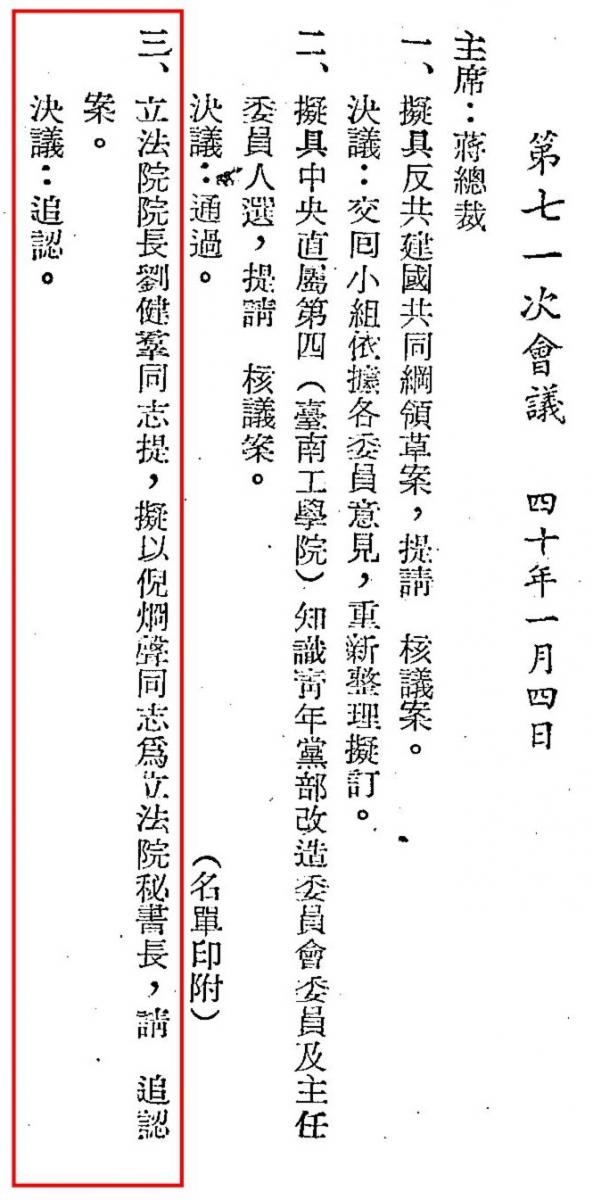 第七一次會議　四十年一月四日
主席：蔣總裁
一、擬具反共建國共同綱領草案，提請　核議案。
決議：交回小組依據各委員意見，重新整理擬訂。
二、擬具中央直屬第四（臺南工學院）知識靑年黨部改造委員會委員及主任
委員人選，提請　核議案。
決議：通過。　（名單印附）
三、立法院院長劉健羣同志提，擬以倪烱聲同志爲立法院秘書長，請　追認
案。
決議：追認。